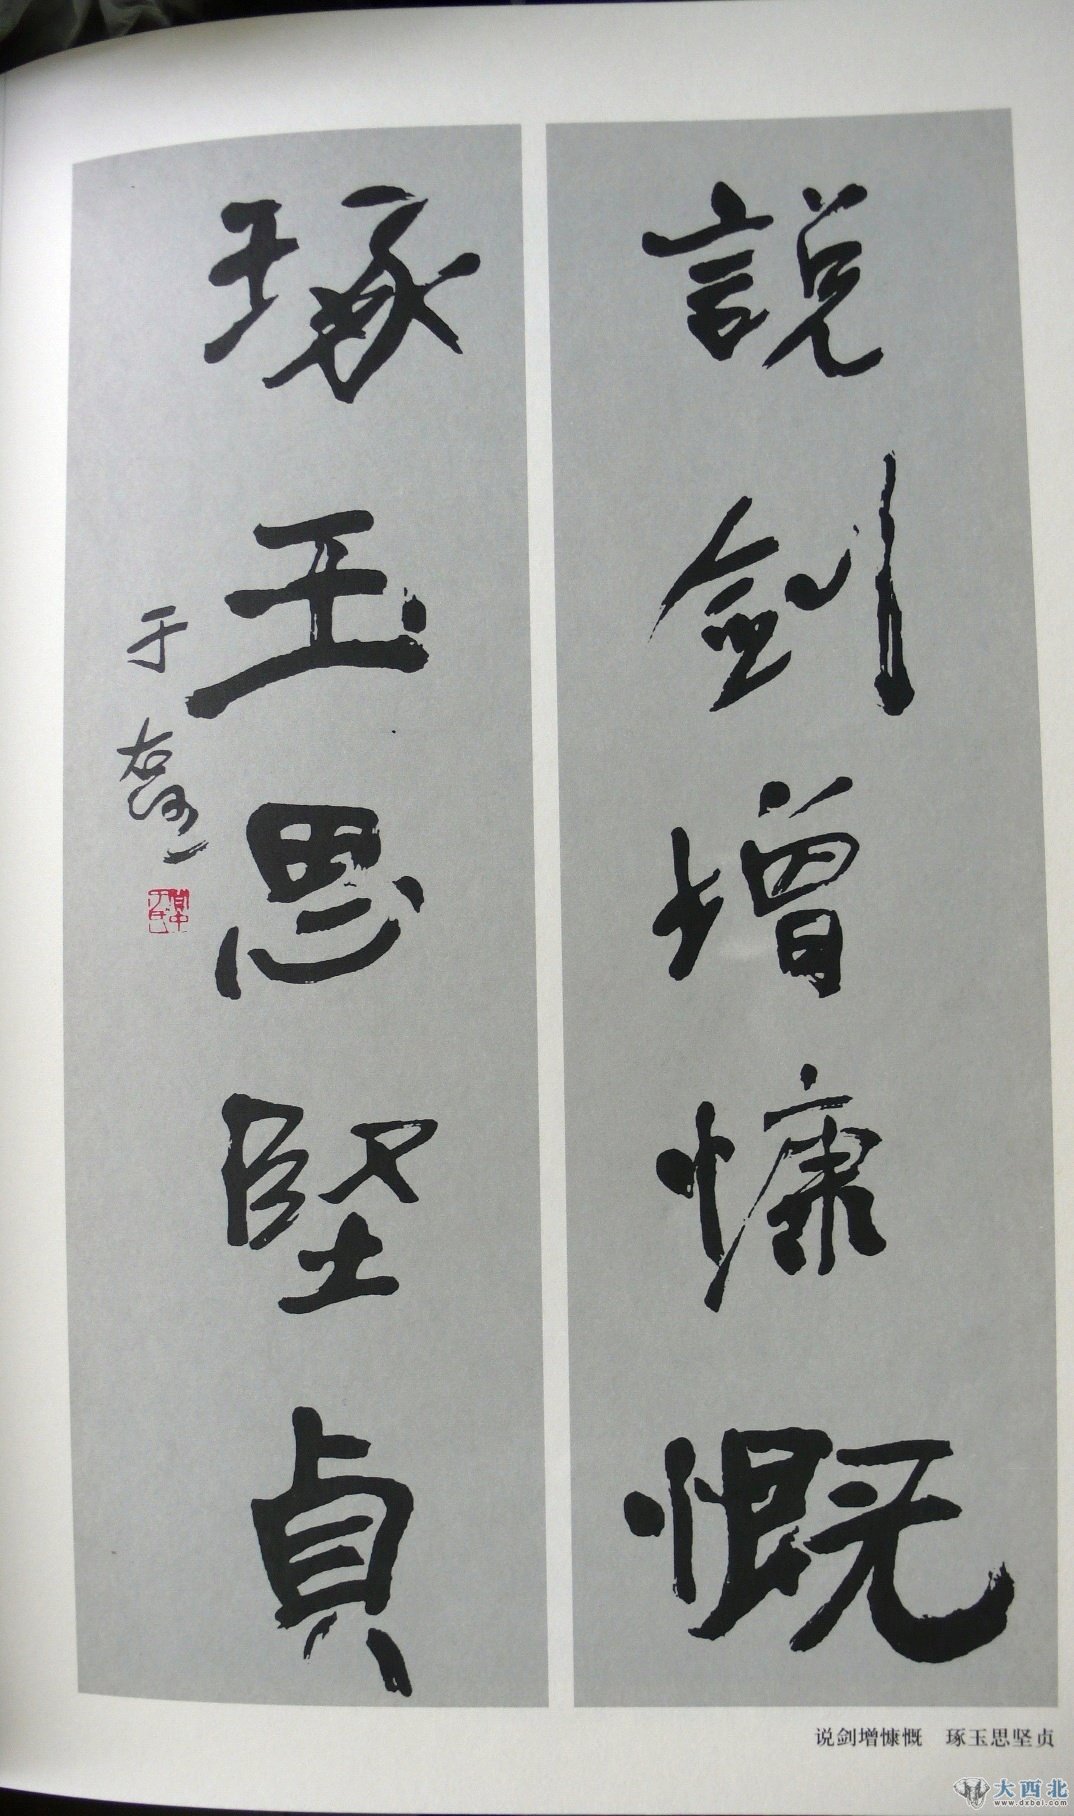 説劍增慷慨
琢玉思堅貞
于右任
说剑增慷慨 琢玉思坚贞
大西北
www.dxbei.com